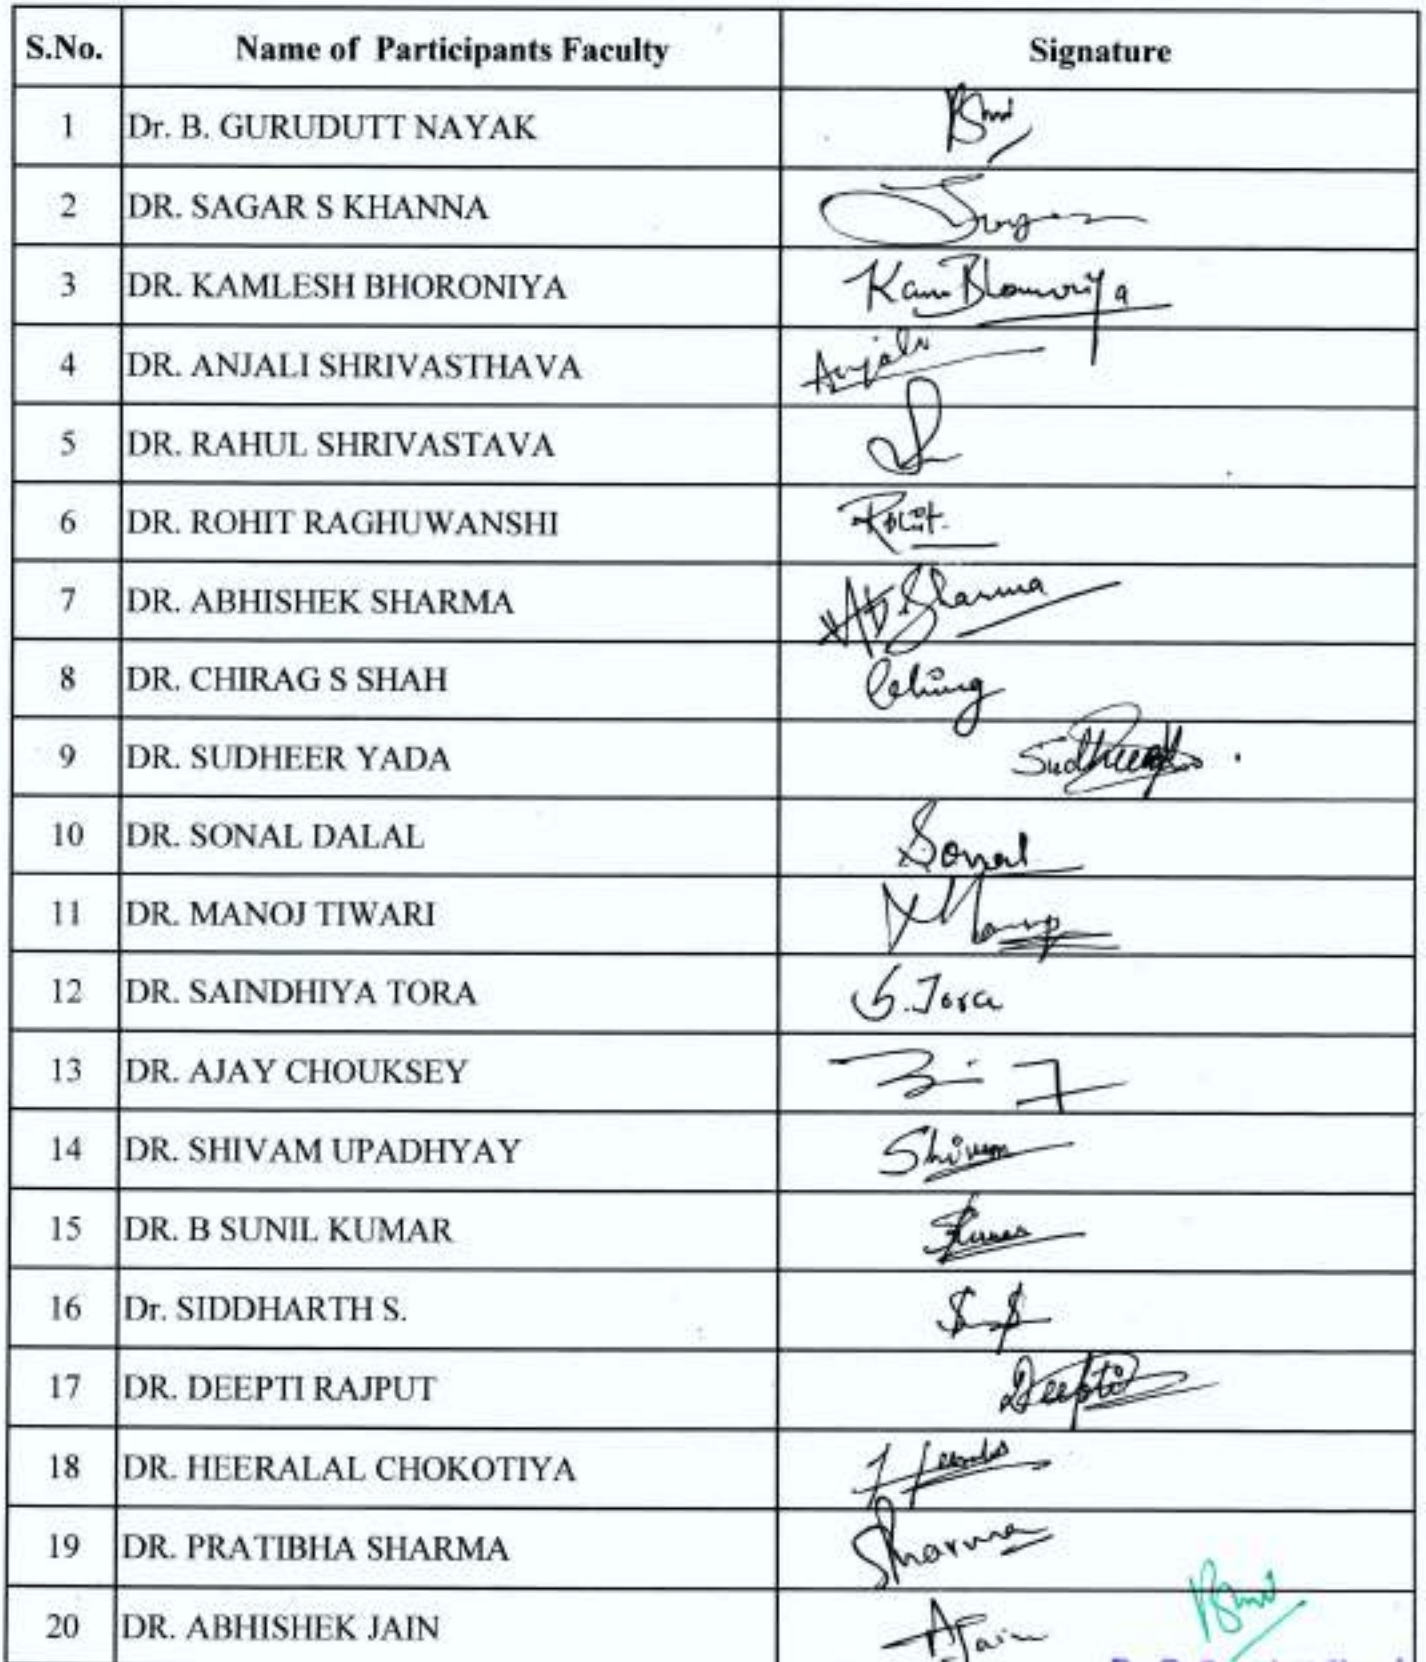 S.No. Name of Participants Faculty Signature
1 Dr. B. GURUDUTT NAYAK
2 DR. SAGAR S KHANNA
3 DR. KAMLESH BHORONIYA
4 DR. ANJALI SHRIVASTHAVA Anjali
5 DR. RAHUL SHRIVASTAVA
6 DR. ROHIT RAGHUWANSHI Rohit
7 DR. ABHISHEK SHARMA Ab Sharma
8 DR. CHIRAG S SHAH
9 DR. SUDHEER YADA Sudheer
10 DR. SONAL DALAL Sonal
11 DR. MANOJ TIWARI
12 DR. SAINDHIYA TORA S. Tora
13 DR. AJAY CHOUKSEY
14 DR. SHIVAM UPADHYAY Shivam
15 DR. B SUNIL KUMAR
16 Dr. SIDDHARTH S.
17 DR. DEEPTI RAJPUT Deepti
18 DR. HEERALAL CHOKOTIYA
19 DR. PRATIBHA SHARMA Sharma
20 DR. ABHISHEK JAIN AJain